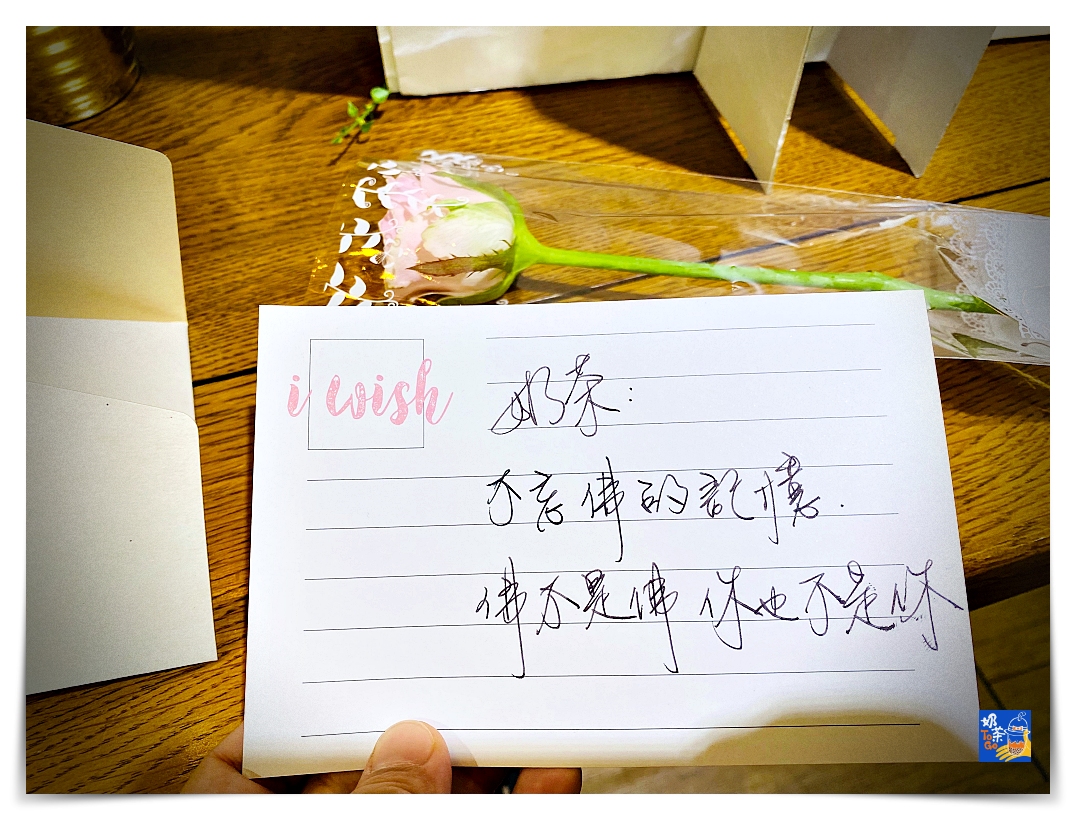 i wish
奶茶：
不忘佛的記憶.
佛不是佛 你也不是你
奶茶
ToGo